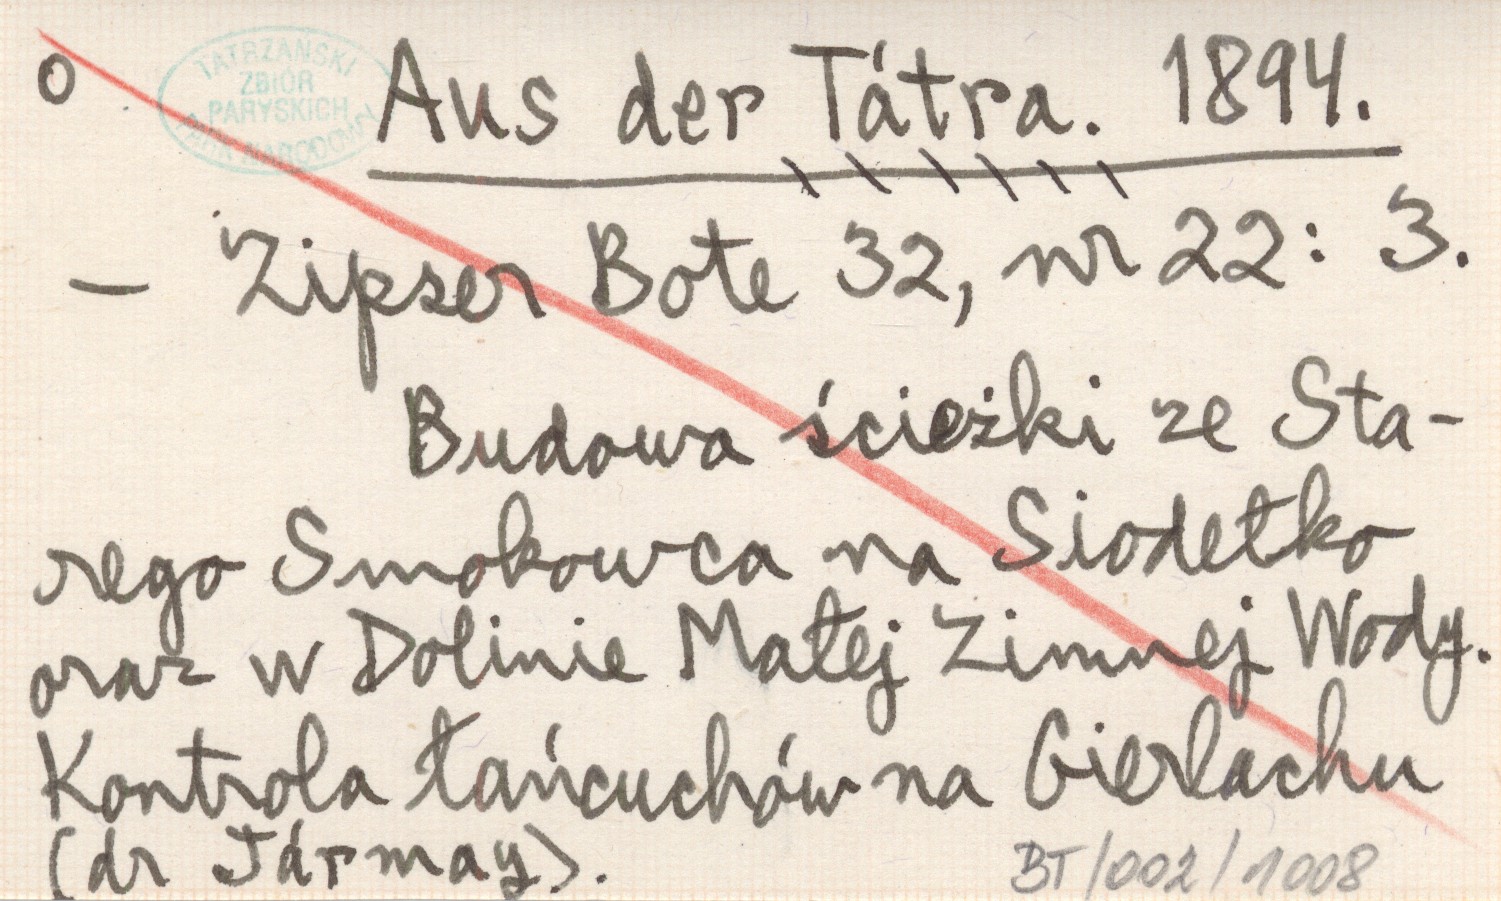 o Aus der Tátra. 1894.
TATRZAŃSKI
ZBIÓR
PARYSKICH
PARK NARODOWY
— Zipser Bote 32, nr 22: 3.
Budowa ścieżki ze Sta-
rego Smokowca na Siodełko
oraz w Dolinie Małej Zimnej Wody.
Kontrola łańcuchów na Gierlachu
(dr Jármay).
BT/002/1008